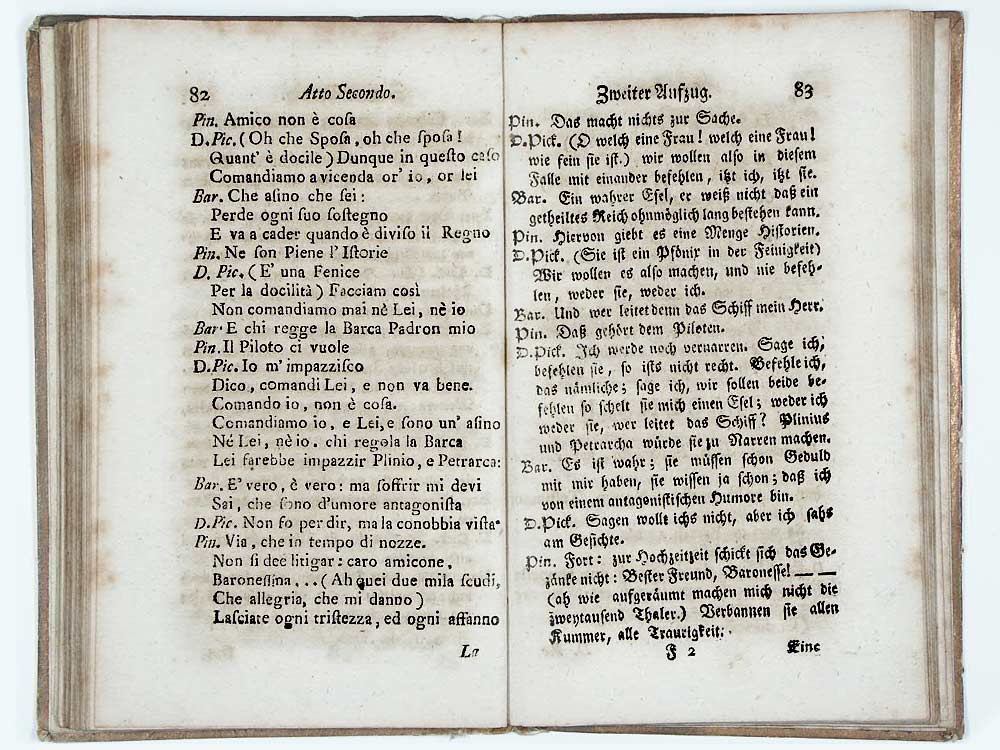 82 Atto Secondo.
Pin. Amico non è coſa
D. Pic. (Oh che Spoſa, oh che ſpoſa!
Quant' è docile) Dunque in queſto caſo
Comandiamo a vicenda or' io, or lei
Bar. Che aſino che ſei:
Perde ogni ſuo ſoſtegno
E va a cader quando è diviſo il Regno
Pin. Ne ſon Piene l' Iſtorie
D. Pic. (E' una Fenice
Per la docilità) Facciam così
Non comandiamo mai nè Lei, nè io
Bar. E chi regge la Barca Padron mio
Pin. Il Piloto ci vuole
D. Pic. Io m' impazziſco
Dico, comandi Lei, e non va bene.
Comando io, non è coſa.
Comandiamo io, e Lei, e ſono un' aſino
Né Lei, nè io. chi regola la Barca
Lei farebbe impazzir Plinio, e Petrarca:
Bar. E' vero, è vero: ma ſoffrir mi devi
Sai, che ſono d'umore antagoniſta
D. Pic. Non ſo per dir, ma la conobbi a viſta.
Pin. Via, che in tempo di nozze.
Non ſi dee litigar: caro amicone,
Baroneſſina... (Ah quei due mila ſcudi,
Che allegria, che mi danno)
Laſciate ogni triſtezza, ed ogni affanno
La
Zweiter Aufzug. 83
Pin. Das macht nichts zur Sache.
D. Pick. (O welch eine Frau! welch eine Frau!
wie fein ſie iſt.) wir wollen alſo in dieſem
Falle mit einander befehlen, itzt ich, itzt ſie.
Bar. Ein wahrer Eſel, er weiß nicht daß ein
getheiltes Reich ohnmöglich lang beſtehen kann.
Pin. Hiervon giebt es eine Menge Hiſtorien.
D. Pick. (Sie iſt ein Pfönix in der Feinigkeit)
Wir wollen es alſo machen, und nie befeh-
len, weder ſie, weder ich.
Bar. Und wer leitet denn das Schiff mein Herr.
Pin. Daß gehört dem Piloten.
D. Pick. Ich werde noch vernarren. Sage ich,
befehlen ſie, ſo iſts nicht recht. Befehle ich,
das nämliche; ſage ich, wir ſollen beide be-
fehlen ſo ſchelt ſie mich einen Eſel; weder ich
weder ſie, wer leitet das Schiff? Plinius
und Petrarcha würde ſie zu Narren machen.
Bar. Es iſt wahr; ſie müſſen ſchon Geduld
mit mir haben, ſie wiſſen ja ſchon; daß ich
von einem antagoniſtiſchen Humore bin.
D. Pick. Sagen wollt ichs nicht, aber ich ſahs
am Geſichte.
Pin. Fort: zur Hochzeitzeit ſchickt ſich das Ge-
zänke nicht: Beſter Freund, Baroneſſe! — —
(ah wie aufgeräumt machen mich nicht die
zweytauſend Thaler.) Verbannen ſie allen
Kummer, alle Traurigkeit:
F 2 Eine